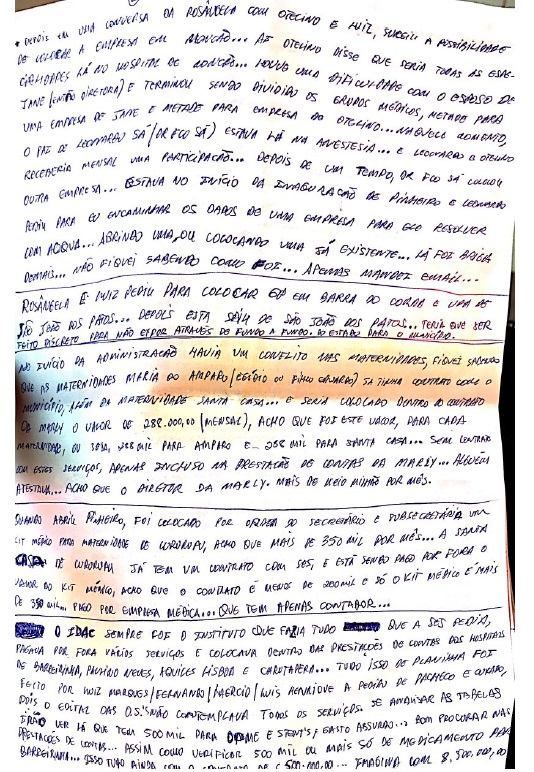 * DEPOIS EM UMA CONVERSA DA ROSÂNGELA COM OTELINO E LUIZ, SURGIU A POSSIBILIDADE
DE COLOCAR A EMPRESA EM MONÇÃO... AÍ OTELINO DISSE QUE SERIA TODAS AS ESPE-
CIALIDADES LÁ NO HOSPITAL DE MONÇÃO... HOUVE UMA DIFICULDADE COM O ESPOSO DE
JANE (ENTÃO DIRETORA) E TERMINOU SENDO DIVIDIDO OS GRUPOS MÉDICOS, METADE PARA
UMA EMPRESA DE JANE E METADE PARA EMPRESA DO OTELINO... NAQUELE MOMENTO,
O PAI DE LEONARDO SÁ (DR FCO SÁ) ESTAVA LÁ NA ANESTESIA... E LEONARDO E OTELINO
RECEBERIA MENSAL UMA PARTICIPAÇÃO... DEPOIS DE UM TEMPO, DR FCO SÁ COLOCOU
OUTRA EMPRESA... ESTAVA NO INÍCIO DA INAUGURAÇÃO DE PINHEIRO E LEONARDO
PEDIU PARA EU ENCAMINHAR OS DADOS DE UMA EMPRESA PARA ELE RESOLVER
COM ACQUA... ABRINDO UMA, OU COLOCANDO UMA JÁ EXISTENTE... LÁ FOI BRIGA
DEMAIS... NÃO FIQUEI SABENDO COMO FOI... APENAS MANDEI EMAIL...
ROSÂNGELA E LUIZ PEDIU PARA COLOCAR EM BARRA DO CORDA E UPA DE
SÃO JOÃO DOS PATOS... DEPOIS ESTA SAIU DE SÃO JOÃO DOS PATOS... TERIA QUE SER
FEITO DISCRETO PARA NÃO EXPOR ATRAVÉS DE FUNDO A FUNDO. DO ESTADO PARA O MUNICÍPIO.
NO INÍCIO DA ADMINISTRAÇÃO HAVIA UM CONFLITO NAS MATERNIDADES, FIQUEI SABENDO
QUE AS MATERNIDADES MARIA DO AMPARO (EGÍDIO OU FILHO EDUARDO) JÁ TINHA CONTRATO COM O
MUNICÍPIO, ALÉM DA MATERNIDADE SANTA CASA... E SERIA COLOCADO DENTRO DO CONTRATO
DA MARLY O VALOR DE 288.000,00 (MENSAL), ACHO QUE FOI ESTE VALOR, PARA CADA
MATERNIDADE, OU SEJA, 288 MIL PARA AMPARO E 288 MIL PARA SANTA CASA... SEM CONTRATO
COM ESTES SERVIÇOS, APENAS INCLUSO NA PRESTAÇÃO DE CONTAS DA MARLY... ALGUÉM
ATESTAVA... ACHO QUE O DIRETOR DA MARLY. MAIS DE MEIO MILHÃO POR MÊS.
QUANDO ABRIU PINHEIRO, FOI COLOCADO POR ORDEM DO SECRETÁRIO E SUBSECRETÁRIA UM
KIT MÉDICO PARA MATERNIDADE DE CURURUPU, ACHO QUE MAIS DE 350 MIL POR MÊS... A SANTA
CASA DE CURURUPU JÁ TEM UM CONTRATO COM SES, E ESTÁ SENDO PAGO POR FORA O
VALOR DO KIT MÉDICO, ACHO QUE O CONTRATO É MENOS DE 200 MIL E SÓ O KIT MÉDICO É MAIS
DE 350 MIL... PAGO POR EMPRESA MÉDICA... QUE TEM APENAS CONTADOR...
O IDAC SEMPRE FOI O INSTITUTO QUE FAZIA TUDO QUE A SES PEDIA,
PAGAVA POR FORA VÁRIOS SERVIÇOS E COLOCAVA DENTRO DAS PRESTAÇÕES DE CONTAS DOS HOSPITAIS
DE BARREIRINHA, PAULINO NEVES, AQUILES LISBOA E CARUTAPERA... TUDO ISSO DE PLANILHA FOI
FEITO POR LUIZ MARQUES/FERNANDO/LUIS HENRIQUE A PEDIDO DE PACHECO E
POIS O EDITAL DAS O.S.'S NÃO CONTEMPLAVA TODOS OS SERVIÇOS. SE ANALISAR AS TABELAS
IRÃO VER LÁ QUE TEM 500 MIL PARA OPME E STENT'S, GASTO ABSURDO... BOM PROCURAR NAS
PRESTAÇÕES DE CONTAS... ASSIM COMO VERIFICAR 500 MIL OU MAIS SÓ DE MEDICAMENTO PARA
BARREIRINHA... ISSO TUDO AINDA COM O CONTRATO DE 500.000,00... IMAGINA COM 8.500.000,00